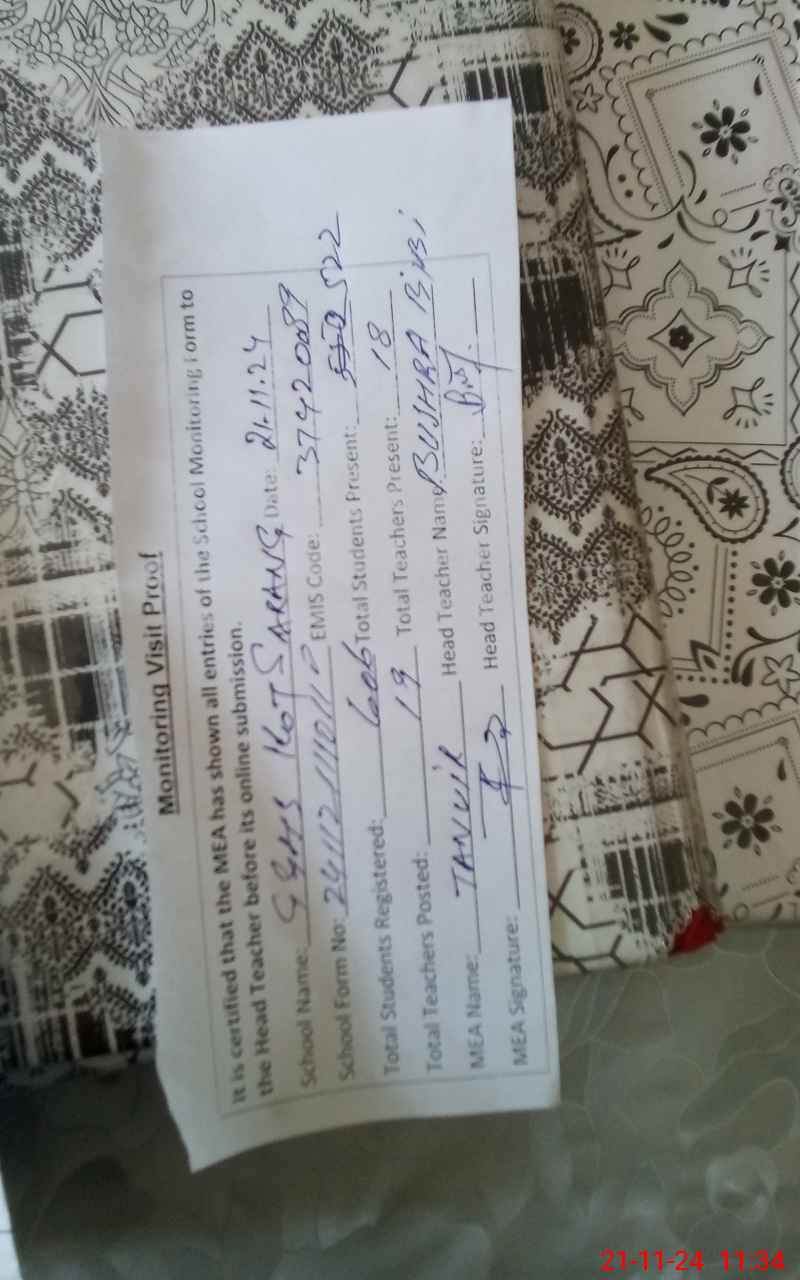 Monitoring Visit Proof
It is certified that the MEA has shown all entries of the School Monitoring Form to
the Head Teacher before its online submission.
School Name: GGHS KOT SARANG Date: 21.11.24
School Form No: EMIS Code: 37420089
Total Students Registered: 606 Total Students Present: 522
Total Teachers Posted: 19 Total Teachers Present: 18
MEA Name: TANVIR Head Teacher Name: BUSHRA Bibi
MEA Signature: Head Teacher Signature:
21-11-24 11:34